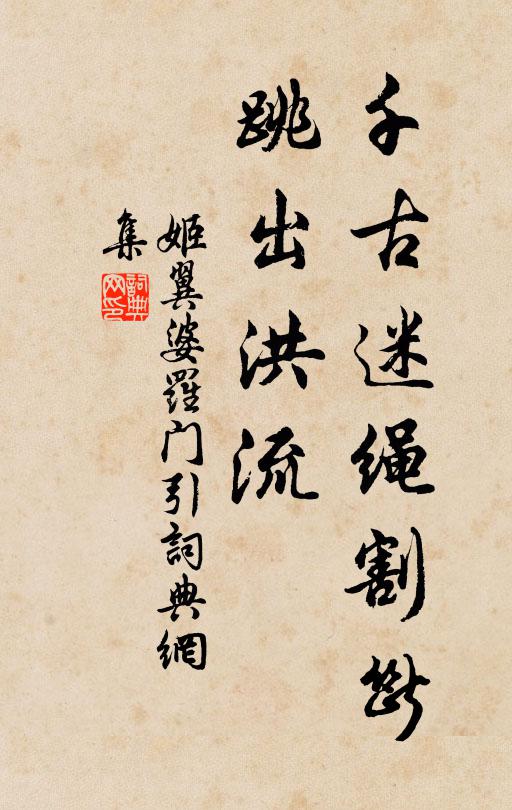 千古迷绳割断
跳出洪流
姬翼婆羅门引詞典網
集
詞典
网印